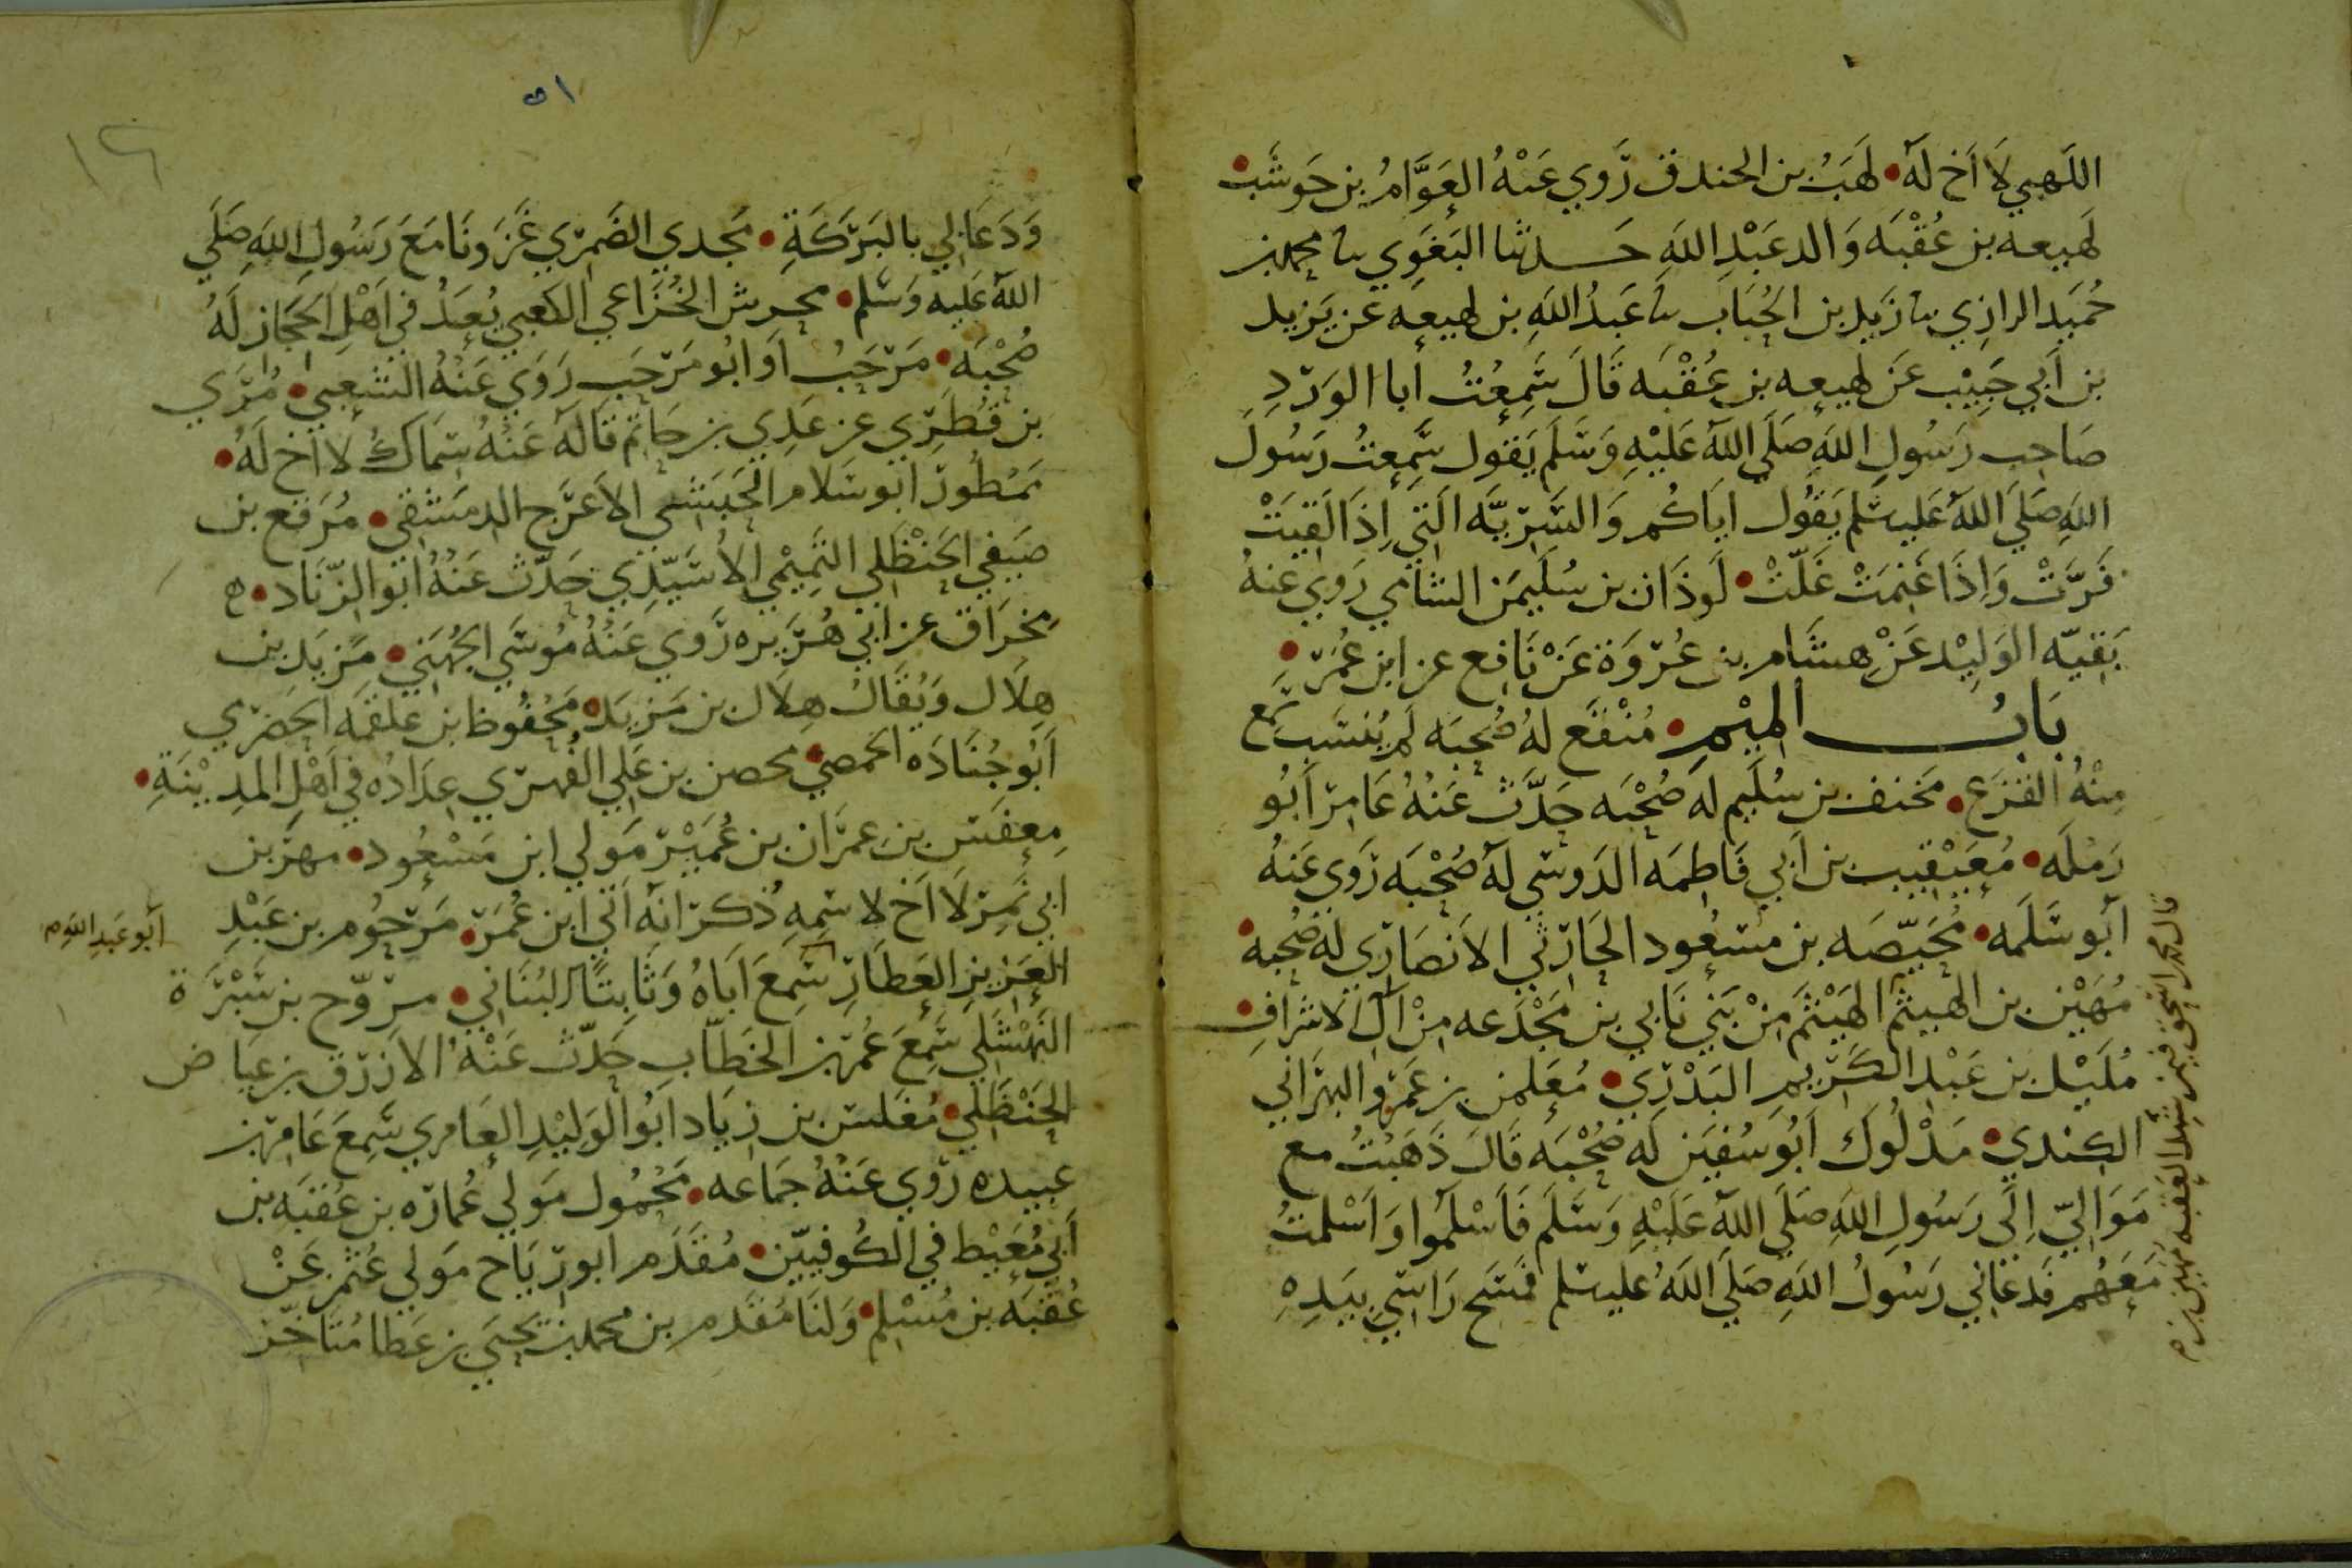 اللَهبي لَا اَخ لَهُ • لَهَبُ بن الخندق رَوي عَنْهُ العَوَّامُ بن حَوشَب •
لَهيعه بن عُقْبَه وَالد عَبْدِ اللَهِ حَدثنا البَغَوِي نا محمد بن
حُمَيد الرازِي نا زَيد بن الحُبَاب نا عَبدُ اللَهِ بن لهيعه عن يَزيد
بن اَبي حَبِيْب عَن لهيعه بن عُقْبَه قَالَ سَمِعْتُ أبا الوَرْدِ
صَاحِب رَسُولِ اللَهِ صَلَي اللَهُ عَلَيْهِ وَسَلَمَ يَقول سَمِعتُ رَسُولَ
اللَهِ صَلَي اللَهُ عَليه سلم يَقُول اياكُم وَالسَرِيَّه الَتِي اِذَا لَقِيَتْ
فَرَّتْ وَاِذَا غَنِمَتْ غَلَّتْ • لَوذَان بن سُلَيمَن الشامي رَوي عَنهُ
بَقيّه الوَلِيْد عَنْ هِشَام بن عُرْوَة عَنْ نَافِع عن ابن عُمَرْ •
بَابُ المِيْمِ • مُنْقَع لهُ صُحبَه لَم يُنسَب سَمع
مِنْهُ القزَع • مَخنف بن سُلَيم لَه صُحْبَه حَدَّثَ عَنْهُ عَامِرْ اَبُو
رَمْلَه • مُعَيْقِيب بن اَبي فَاطِمَه الدَوسي لَهُ صُحْبَه رَوي عَنهُ
اَبو سَلَمَه • مُحَيّصَه بن مَسْعُود الحَارثي الاَنصَارِي لَه صُحبه •
مُهَيْن بن الهَيثم الهَيْثَم مِنْ بَنِي نَابي بن مَجْدَعه مِنْ آل الاشراف •
مُلَيْل بن عَبْد الكَرْيم البَدْرِي • مُعَلمن بن عَمَرو البهرَاني
الكِندي • مَدْلُوك اَبُو سُفيَن لَه صُحْبَه قَالَ ذَهَبْتُ مع
مَوَاليّ اِلَي رَسُولِ اللَهِ صَلَي اللَهُ عَلَيْهِ وَسَلَمَ فَاَسْلَمُوا وَاَسْلمتُ
مَعَهُم فَدعَاني رَسُولُ اللَهِ صَلَي اللَهُ عليه سلم فمَسَح رَاسِي بيَدِهِ
قال محمد بن اسحق فيمن شهد العَقَبه مُهَيْن بن
٥١
وَدَعَا لي بالبَرْكَةِ • مَجدي الضَمرْي غَزَونَا مَعَ رَسُولِ اللَهِ صَلَي
اللَهُ عَليه وَسَلم • محرش الخُزَاعي الكَعبي يُعَدُ في اَهْلِ الحجَاز لَهُ
صُحْبَه • مَرْحَبُ اَو ابُو مَرْحَبِ رَوَي عَنْهُ الشَعبي • مُرّي
بن قَطَرِي عن عَدِي بن حَاتم قَالَهُ عَنْهُ سِمَاكُ لا اَخ لَهُ •
مَمْطُورْ ابو سَلام الحَبَشي الاَعرَج الدمَشقي • مُرَقع بن
صَيفي الحَنْظَلِي التَمِيْمي الاُسَيِّدِي حَدَّث عَنْهُ ابَو الزّنَاد •
مِخرَاق عن ابي هُرَيره رَوي عَنْهُ مُوسَي الجُهَني • مَزيَد بن
هِلَال وَيُقَالُ هِلَال بن مَزيَد • مَحْفُوظ بن علقمَه الحَضرْي
اَبُو جُنَادَه الحمصي • محصن بن عَلي الفهرْي عِدَادُه في اَهْلِ المدِيْنَةِ •
مِعفَس بن عِمرَان بن عُمَيْر مَولي ابن مَسْعُود • مهزَبن
ابي نَمِرْ لَا اَخ لاسْمِهِ ذُكرْ انَه اَتي ابن عُمَرْ • مَرْحُوم بن عَبْدِ
العَزيز العَطَارْ سَمِعَ اَبَاهُ وَثَابتًا البُنَاني • مرْوّح بن سَبْرَة
اَبُو عَبدِ اللَهِ
النَهشَلي سَمِعَ عُمَرْ بن الخَطَاب حَدَّث عَنْهُ الاَزرَق بن عيَاض
الحَنْظَلي • مُغَلس بن زيَاد ابُو الوَليْدِ العَامري سَمِعَ عَامِرْ بن
عَبيده رَوي عَنْهُ جَمَاعه • مَحْمُول مَولي عُمَارَه بن عُقبَه بن
اَبي مُعَيْط في الكُوفيّين • مُقَدَم ابو رْيَاح مَولي عُثمَن عَنْ
عُقبَه بن مُسْلِم • وَلنَا مُقَدَم بن محمد بن يَحيَي بن عَطا مُتَاخّرْ